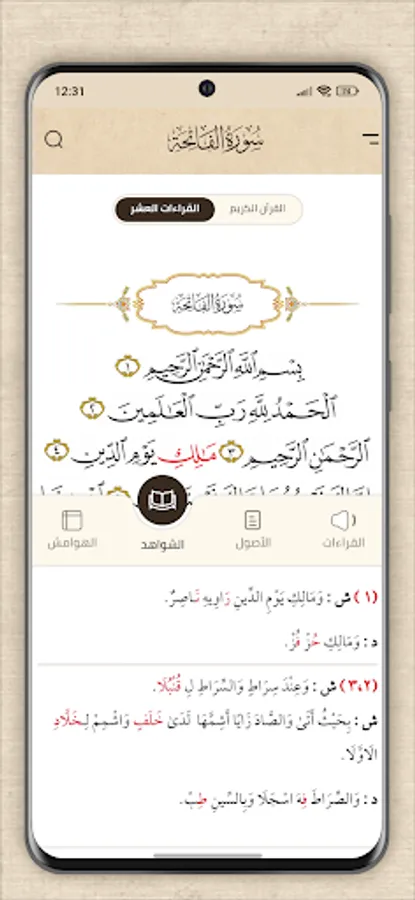 12:31
سُورَةُ الفَاتِحَةِ
القرآن الكريم القراءات العشر
سُورَةُ الفَاتِحَةِ
بِسْمِ ٱللَّهِ ٱلرَّحْمَٰنِ ٱلرَّحِيمِ ١
ٱلْحَمْدُ لِلَّهِ رَبِّ ٱلْعَٰلَمِينَ ٢
ٱلرَّحْمَٰنِ ٱلرَّحِيمِ ٣ مَٰلِكِ يَوْمِ ٱلدِّينِ ٤
القراءات الأصول الشواهد الهوامش
(١) ش : وَمَالِكِ يَوْمِ الدِّينِ رَاوِيهِ نَاصِرٌ.
د : وَمَالِكِ حُزْ فُزْ.
(٣،٢) ش : وَعِنْدَ سِرَاطِ وَالسِّرَاطِ لِ قُنْبُلَا.
ش : بِحَيْثُ أَتَى وَالصَّادَ زَايًا أَشِمَّهَا لَدَىٰ خَلَفٍ وَاشْمِمْ لِخَلَّادِ
الَاوَّلَا.
د : وَالصِّرَاطَ فِهَ اسْجَلَا وَبِالسِّينِ طِبْ.